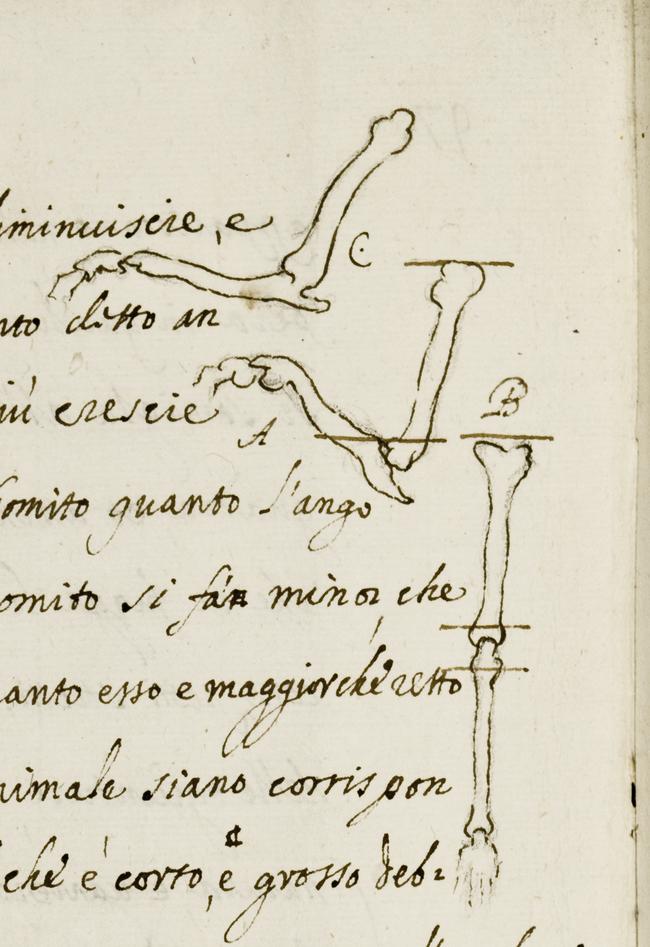 iminuiscie, e
C
nto detto an
iú crescie
A
B
omito quanto l'ango
omito si far minor, che
uanto esso e maggior che retto
nimale siano corrispon
che é corto, e grosso debi